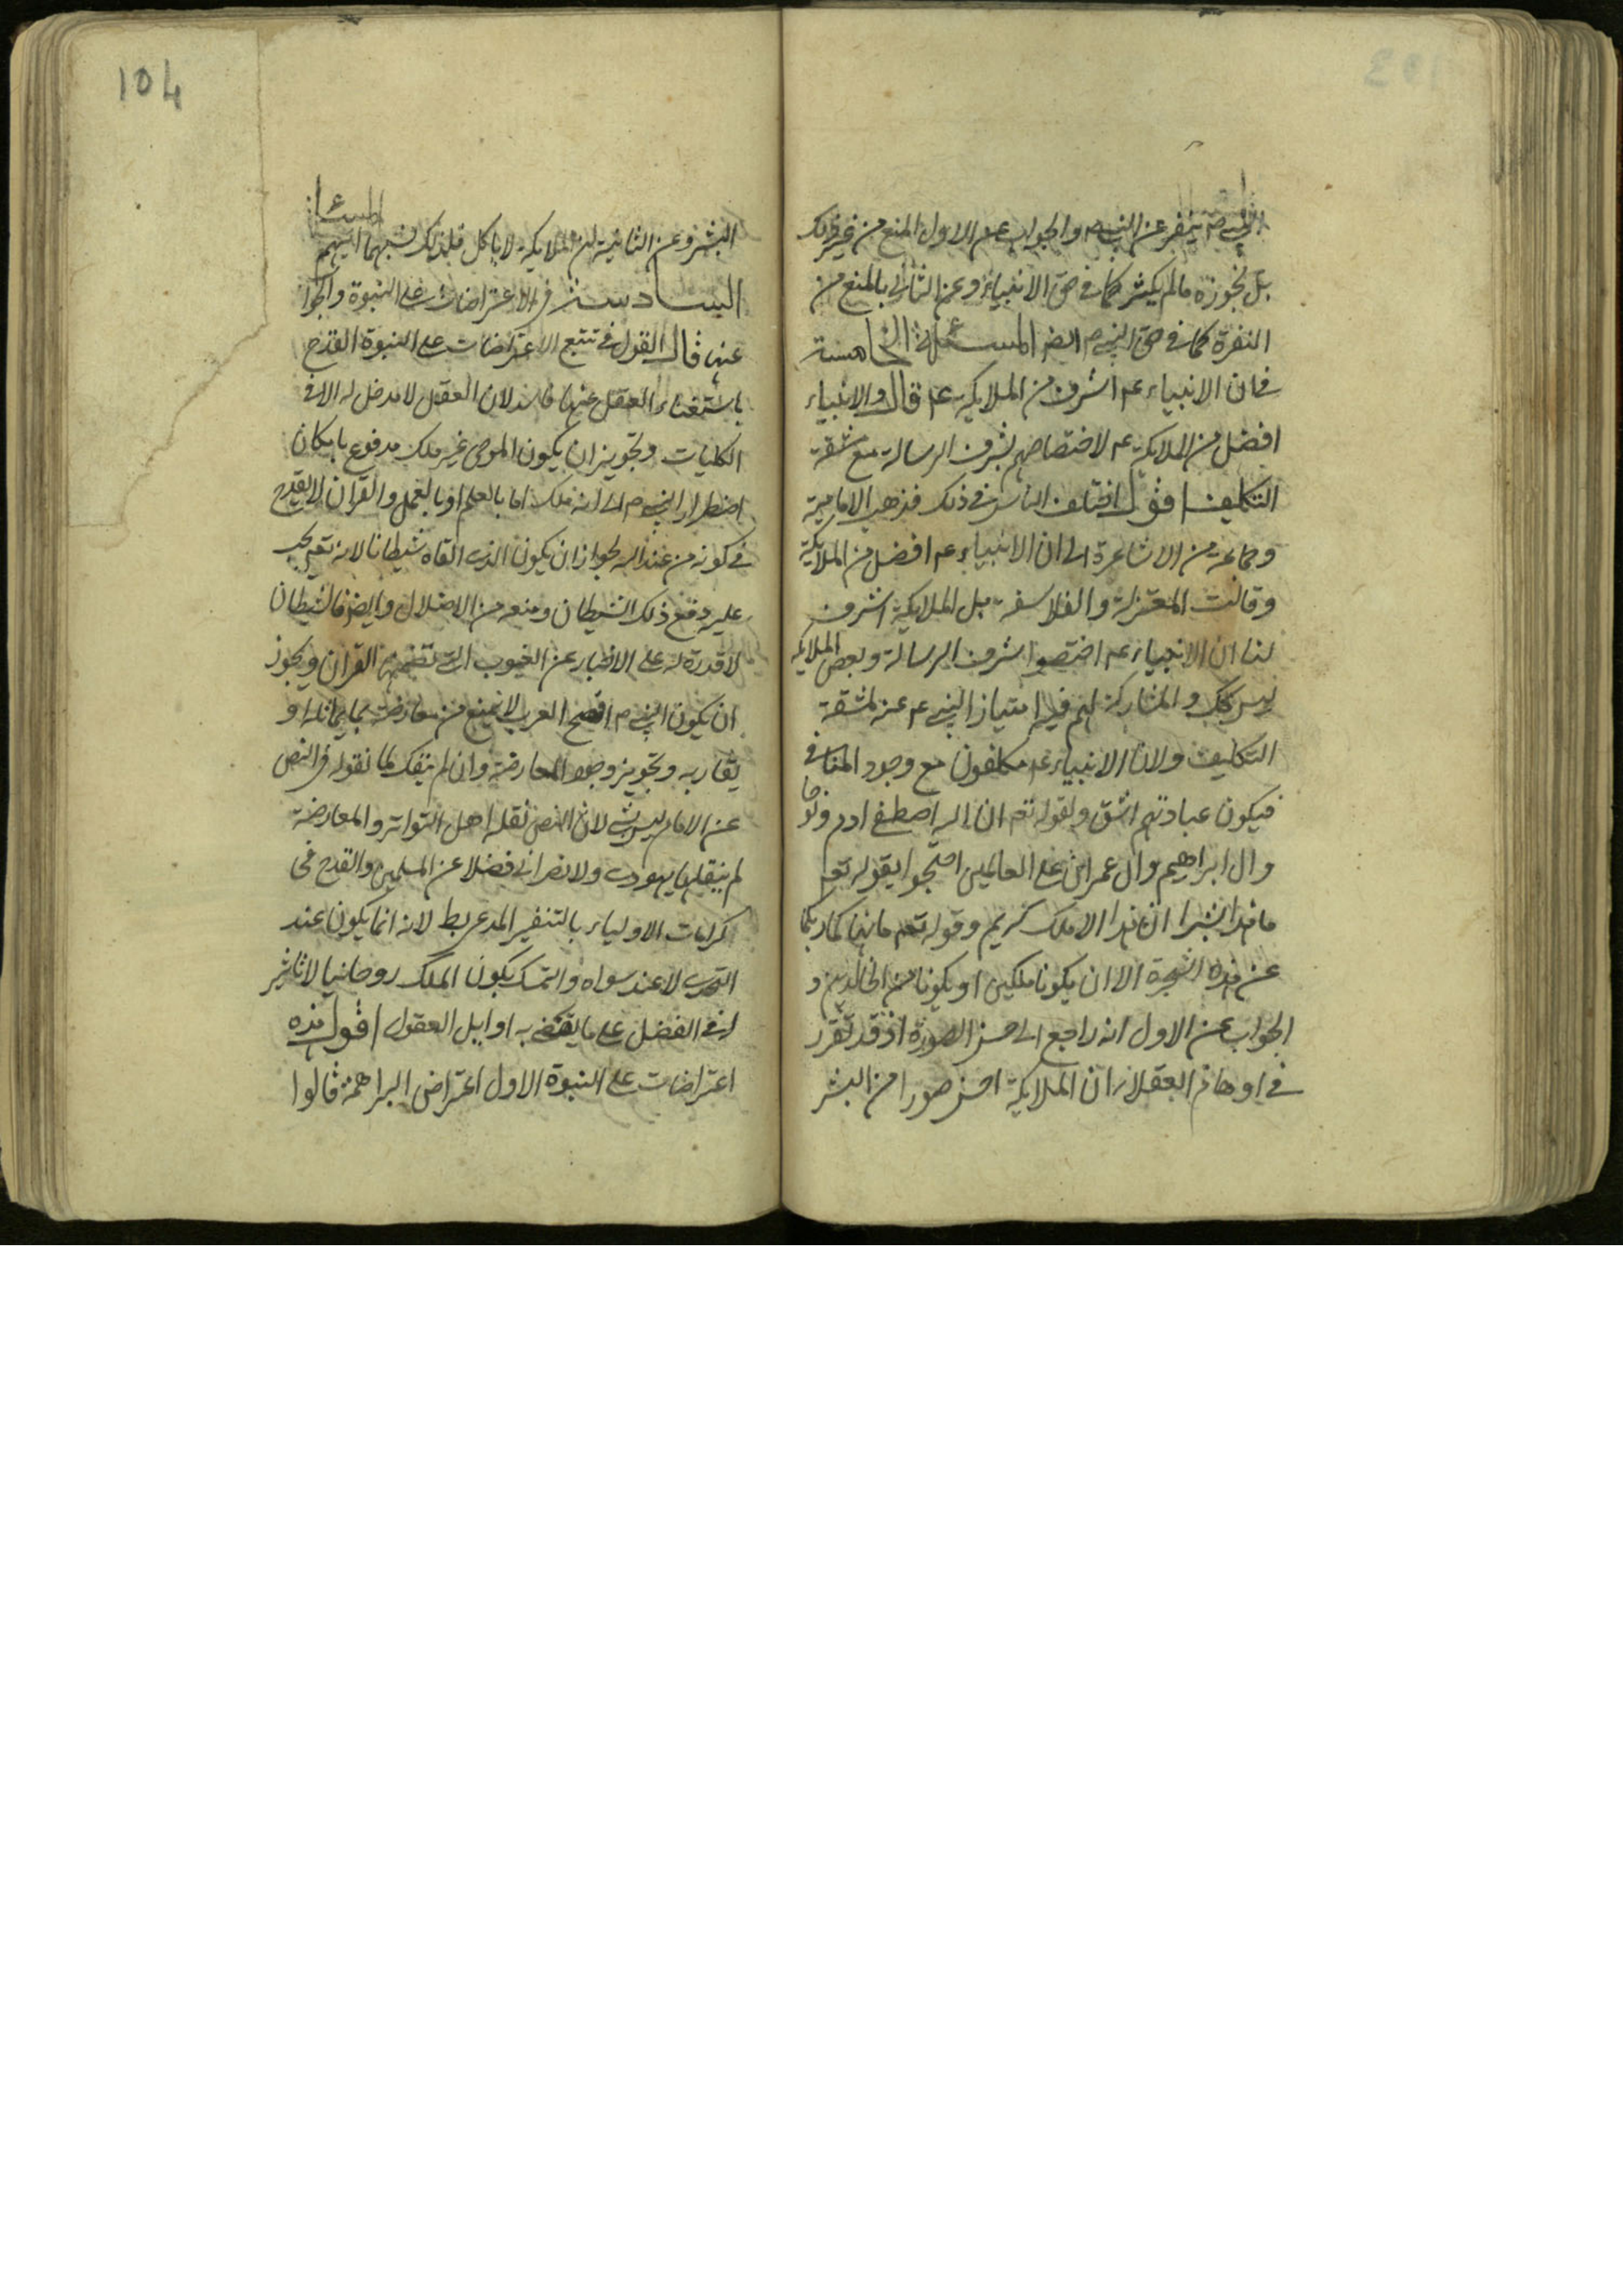 ينفر عن النبي ص والجواب عن الاول المنع من غير ذلك
بل نجوزه ما لم يكثر كما في حق الانبياء وعن الثاني بالمنع من
النفرة كما في حق النبي ص ايضا المسئلة الخامسة
في ان الانبياء عم اشرف من الملايكة عم قال والانبياء
افضل من الملايكة عم لاختصاصهم بشرف الرسالة مع مشقة
التكليف اقول اختلف الناس في ذلك فذهب الامامية
وجماعة من الاشاعرة الى ان الانبياء عم افضل من الملايكة
وقالت المعتزلة والفلاسفة بل الملايكة اشرف
لنا ان الانبياء عم اختصوا بشرف الرسالة وبعض الملايكة
ليس كك والمشاركة لهم فيه امتياز النبي عم عنه بمشقة
التكليف ولان الانبياء عم مكلفون مع وجود المنافي
فيكون عبادتهم اشق ولقوله تع ان الله اصطفى ادم ونوحا
وال ابراهيم وال عمران على العالمين احتجوا بقوله تع
ما هذا بشرا ان هذا الا ملك كريم وقوله تع ما نهاكما ربكما
عن هذه الشجرة الا ان يكونا ملكين او يكونا من الخالدين و
الجواب عن الاول انه راجع الى حسن الصورة اذ قد تقرر
في اوهام العقلاء ان الملايكة احسن صورا من البشر
104
البشر وعن الثانية ان الملايكة لا ياكل فلذلك شبههما بهم المسئلة
السادسة في الاعتراضات على النبوة والجوا
عنها قال القول في تتبع الاعتراضات على النبوة القدح
باستغناء العقل عنها فاسد لان العقل لا مدخل له الا في
الكليات وتجويز ان يكون الموحى غير ملك مدفوع بامكان
اضطرار النبي ص الى انه ملك اما بالعلم او بالعمل والقران لا يقدح
في كونه من عند الله لجواز ان يكون الذي القاه شيطانا لانه تع يجب
عليه دفع ذلك الشيطان ومنعه من الاضلال وايضا فالشيطان
لا قدرة له على الاخبار عن الغيوب التي تضمنها القران ويجوز
ان يكون النبي ص افصح العرب لا يمنع من معارضته بما يماثله او
يقاربه وتجويز وجود المعارضة وان لم ينفك كما نقوله في النص
عن الامام ليس بشي لان النص نقله اهل التواتر والمعارضة
لم ينقلها يهودي ولا نصراني فضلا عن المسلمين والقدح في
كرامات الاولياء بالتنفير المدعى بط لانه انما يكون عند
التحدي لا عند سواه والتمسك بكون الملك روحانيا لا تاثير
له في الفضل على ما يقتضي به اوايل العقول اقول هذه
اعتراضات على النبوة الاول اعتراض البراهمة قالوا